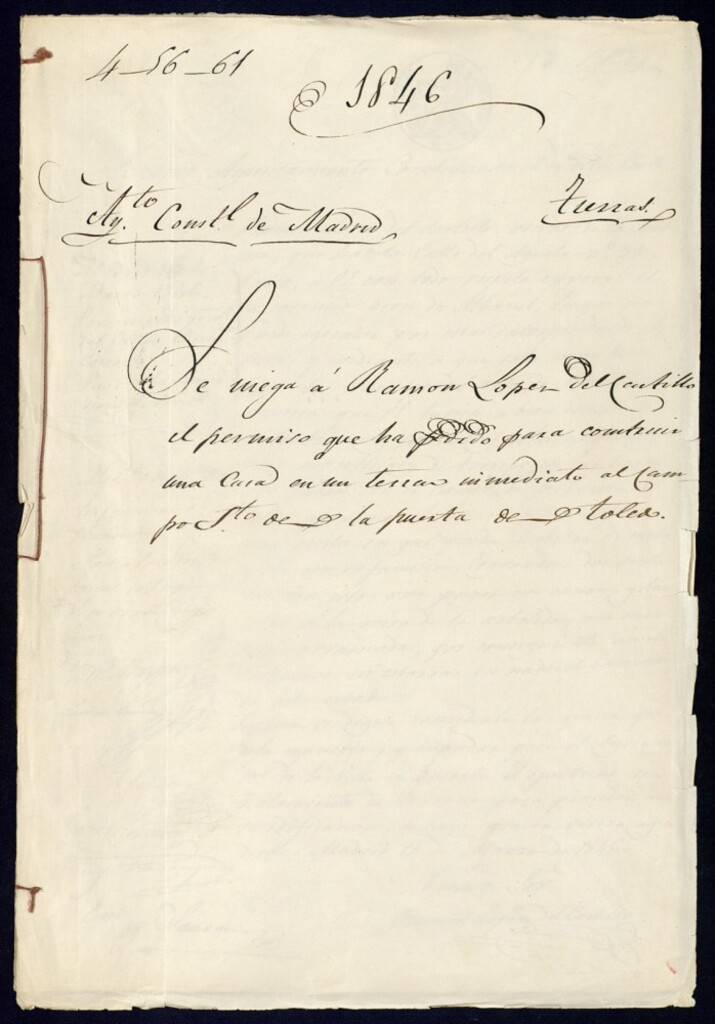 4-56-61
1846
Ay.to Const.l de Madrid
Tierras.
Se niega á Ramon Lopez Del Castillo
el permiso que ha pedido para construir
una Casa en un terreno inmediato al Cam
po S.to de la puerta de toledo.